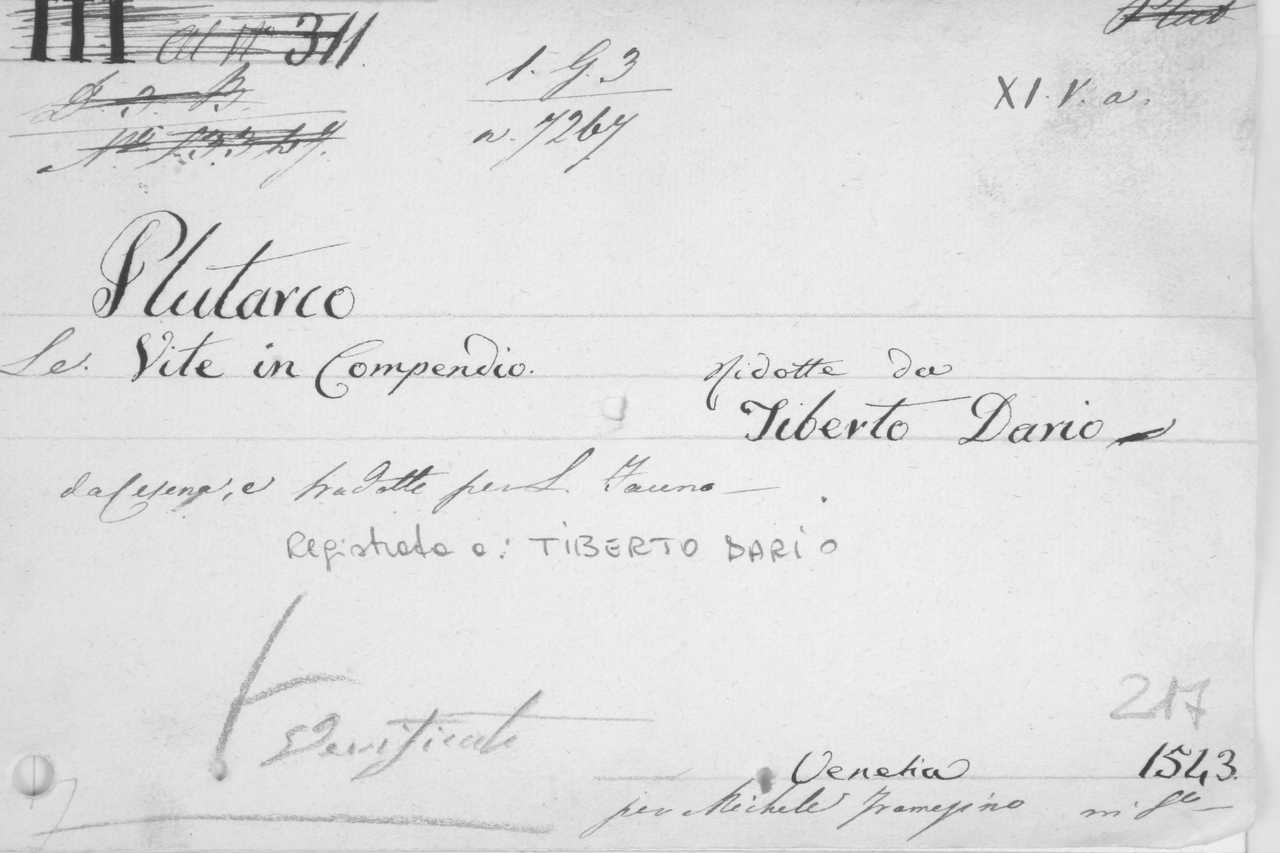 III al N° 311.
D. 3. B.
1. G. 3
XI. V. a.
n. 7267
Plutarco
Le Vite in Compendio.
Ridotte da
Tiberto Dario
da Cesena, e tradotte per L. Fauno
Registrato a: TIBERTO DARIO
Verificato
217
Venetia 1543.
per Michele Tramezino in 8°